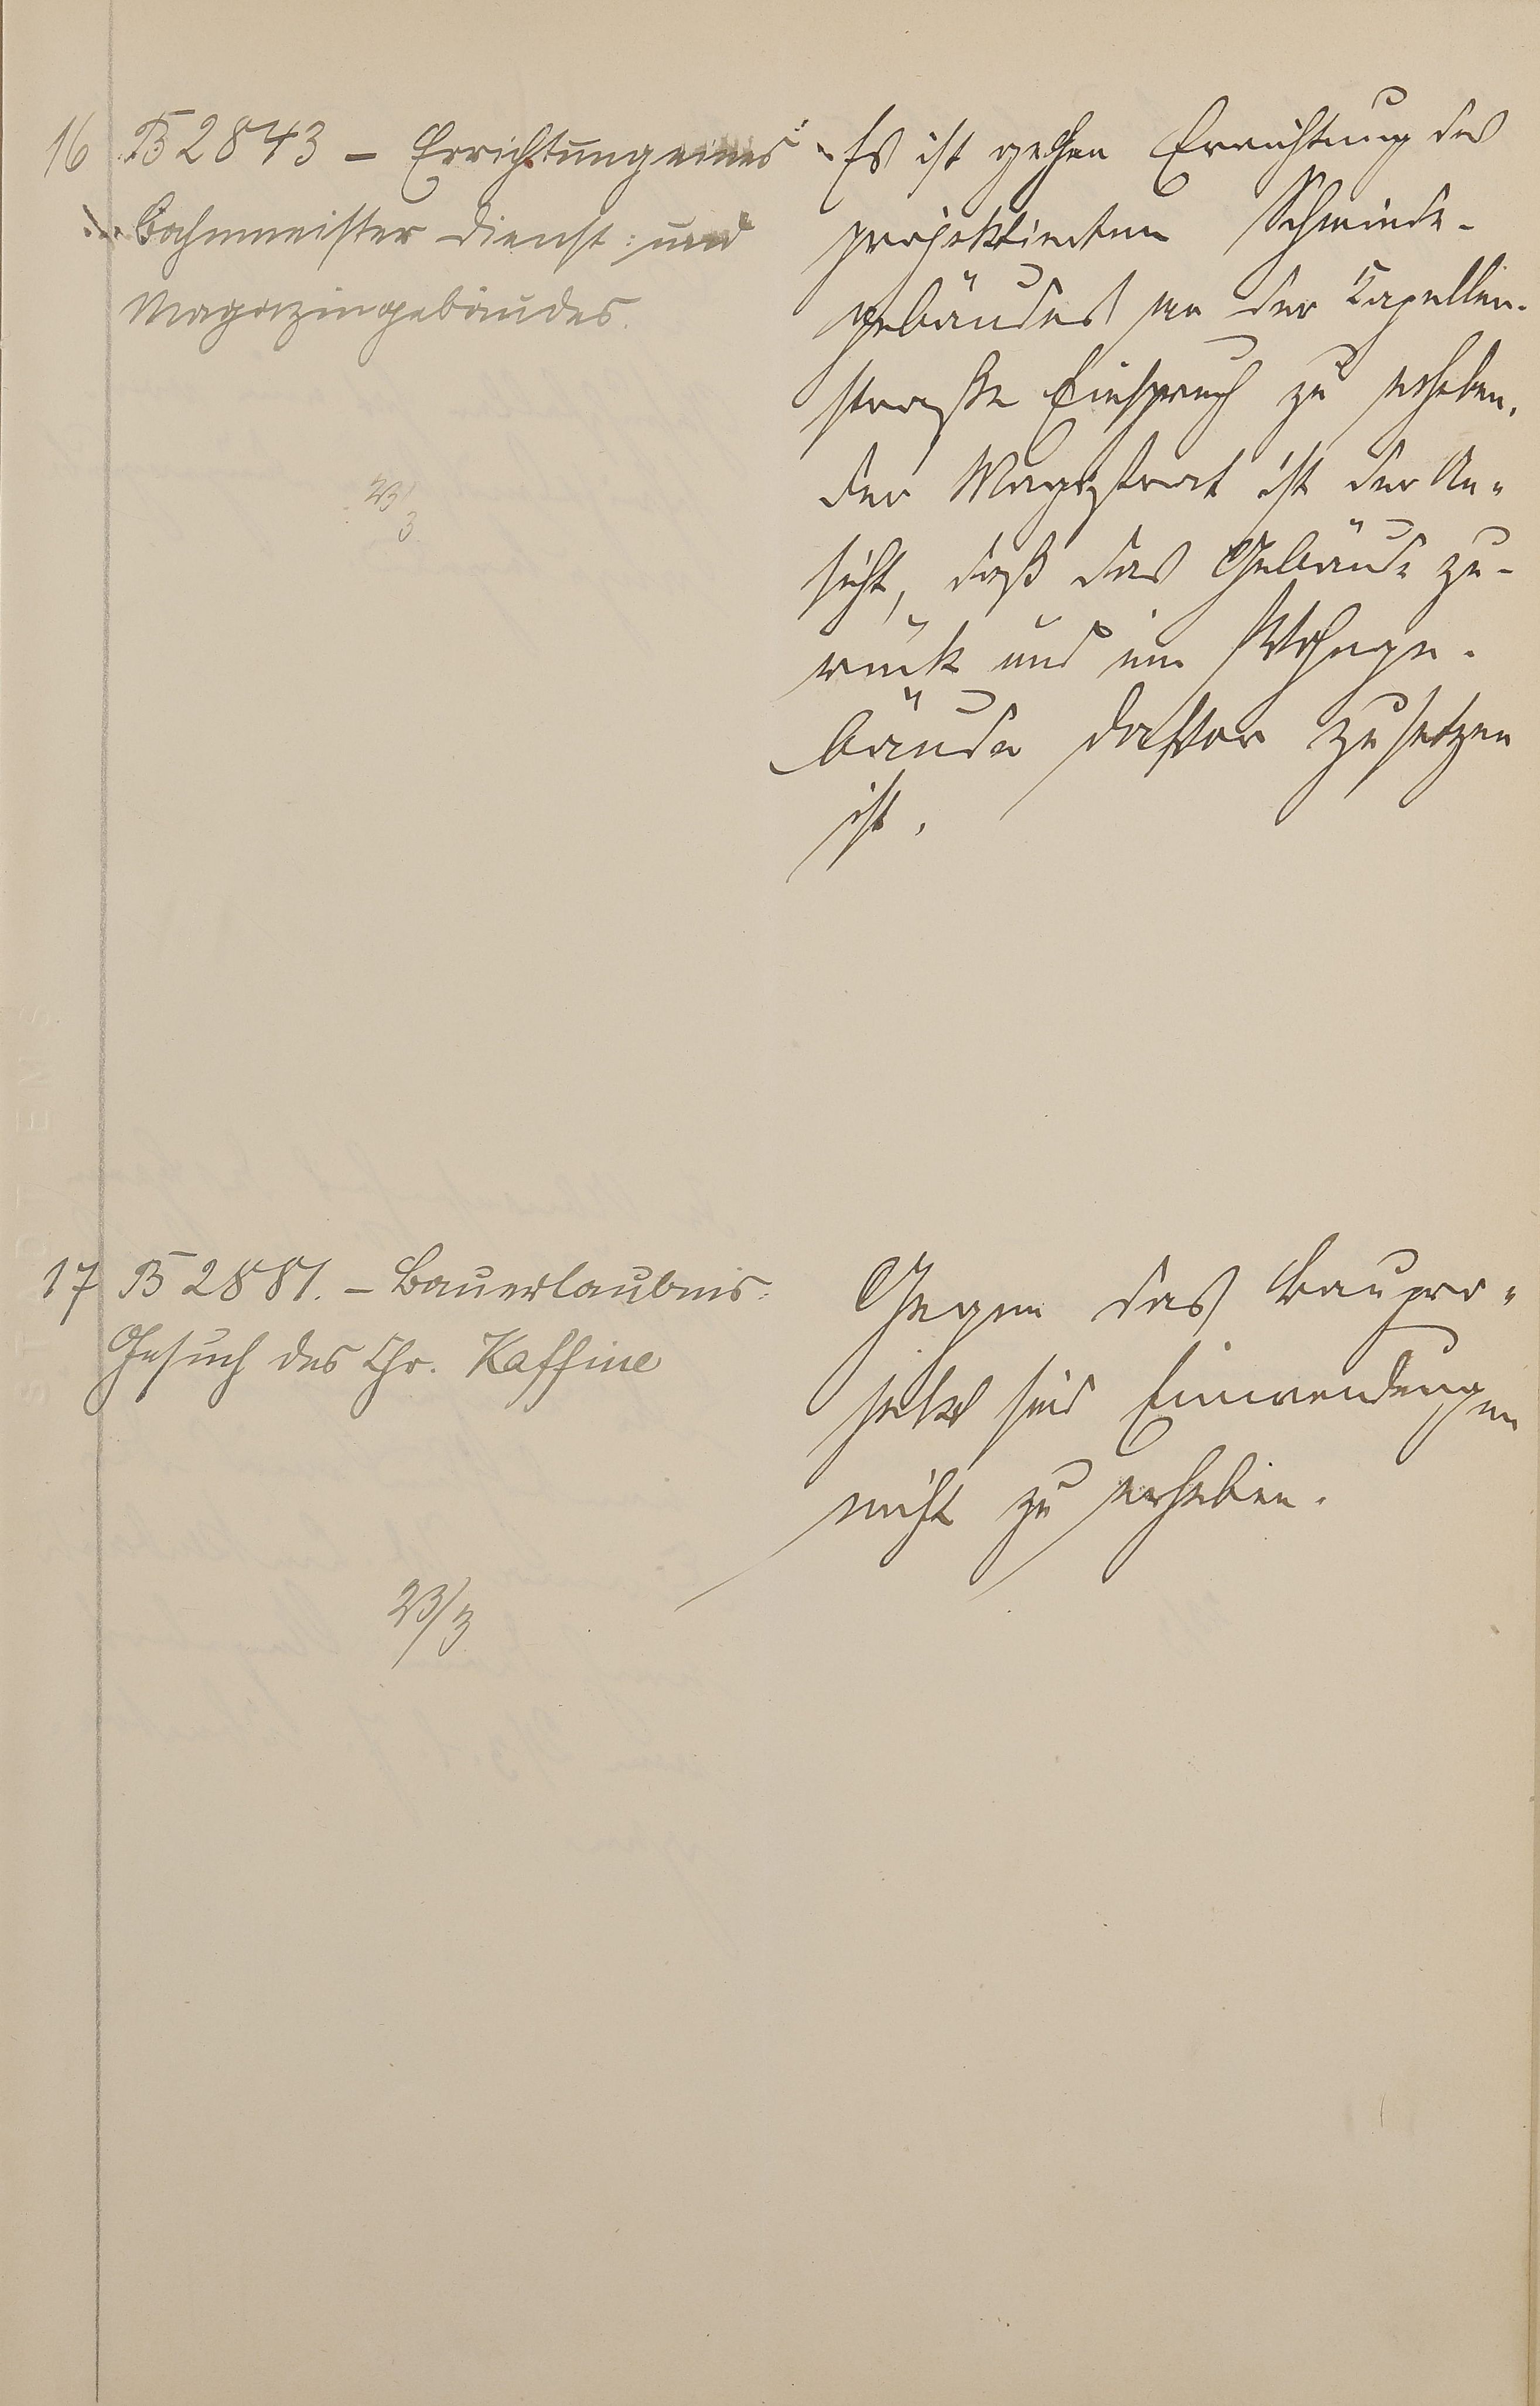 16 B 2843 - Errichtung eines
Bahnmeister Dienst: und
Magazingebäudes.
23/3
Es ist gegen Errichtung des
projektierten
gebäudes an der Kapellen-
straße Einspruch zu erheben.
Der Magistrat ist der An-
sicht, daß das Gebäude zu-
rück und ein Wohnge-
bäude davor zu setzen
ist.
17 B 2881. - Bauerlaubnis-
Gesuch des Chr. Kaffine
23/3
Gegen das Baupro-
jekt sind Einwendungen
nicht zu erheben.